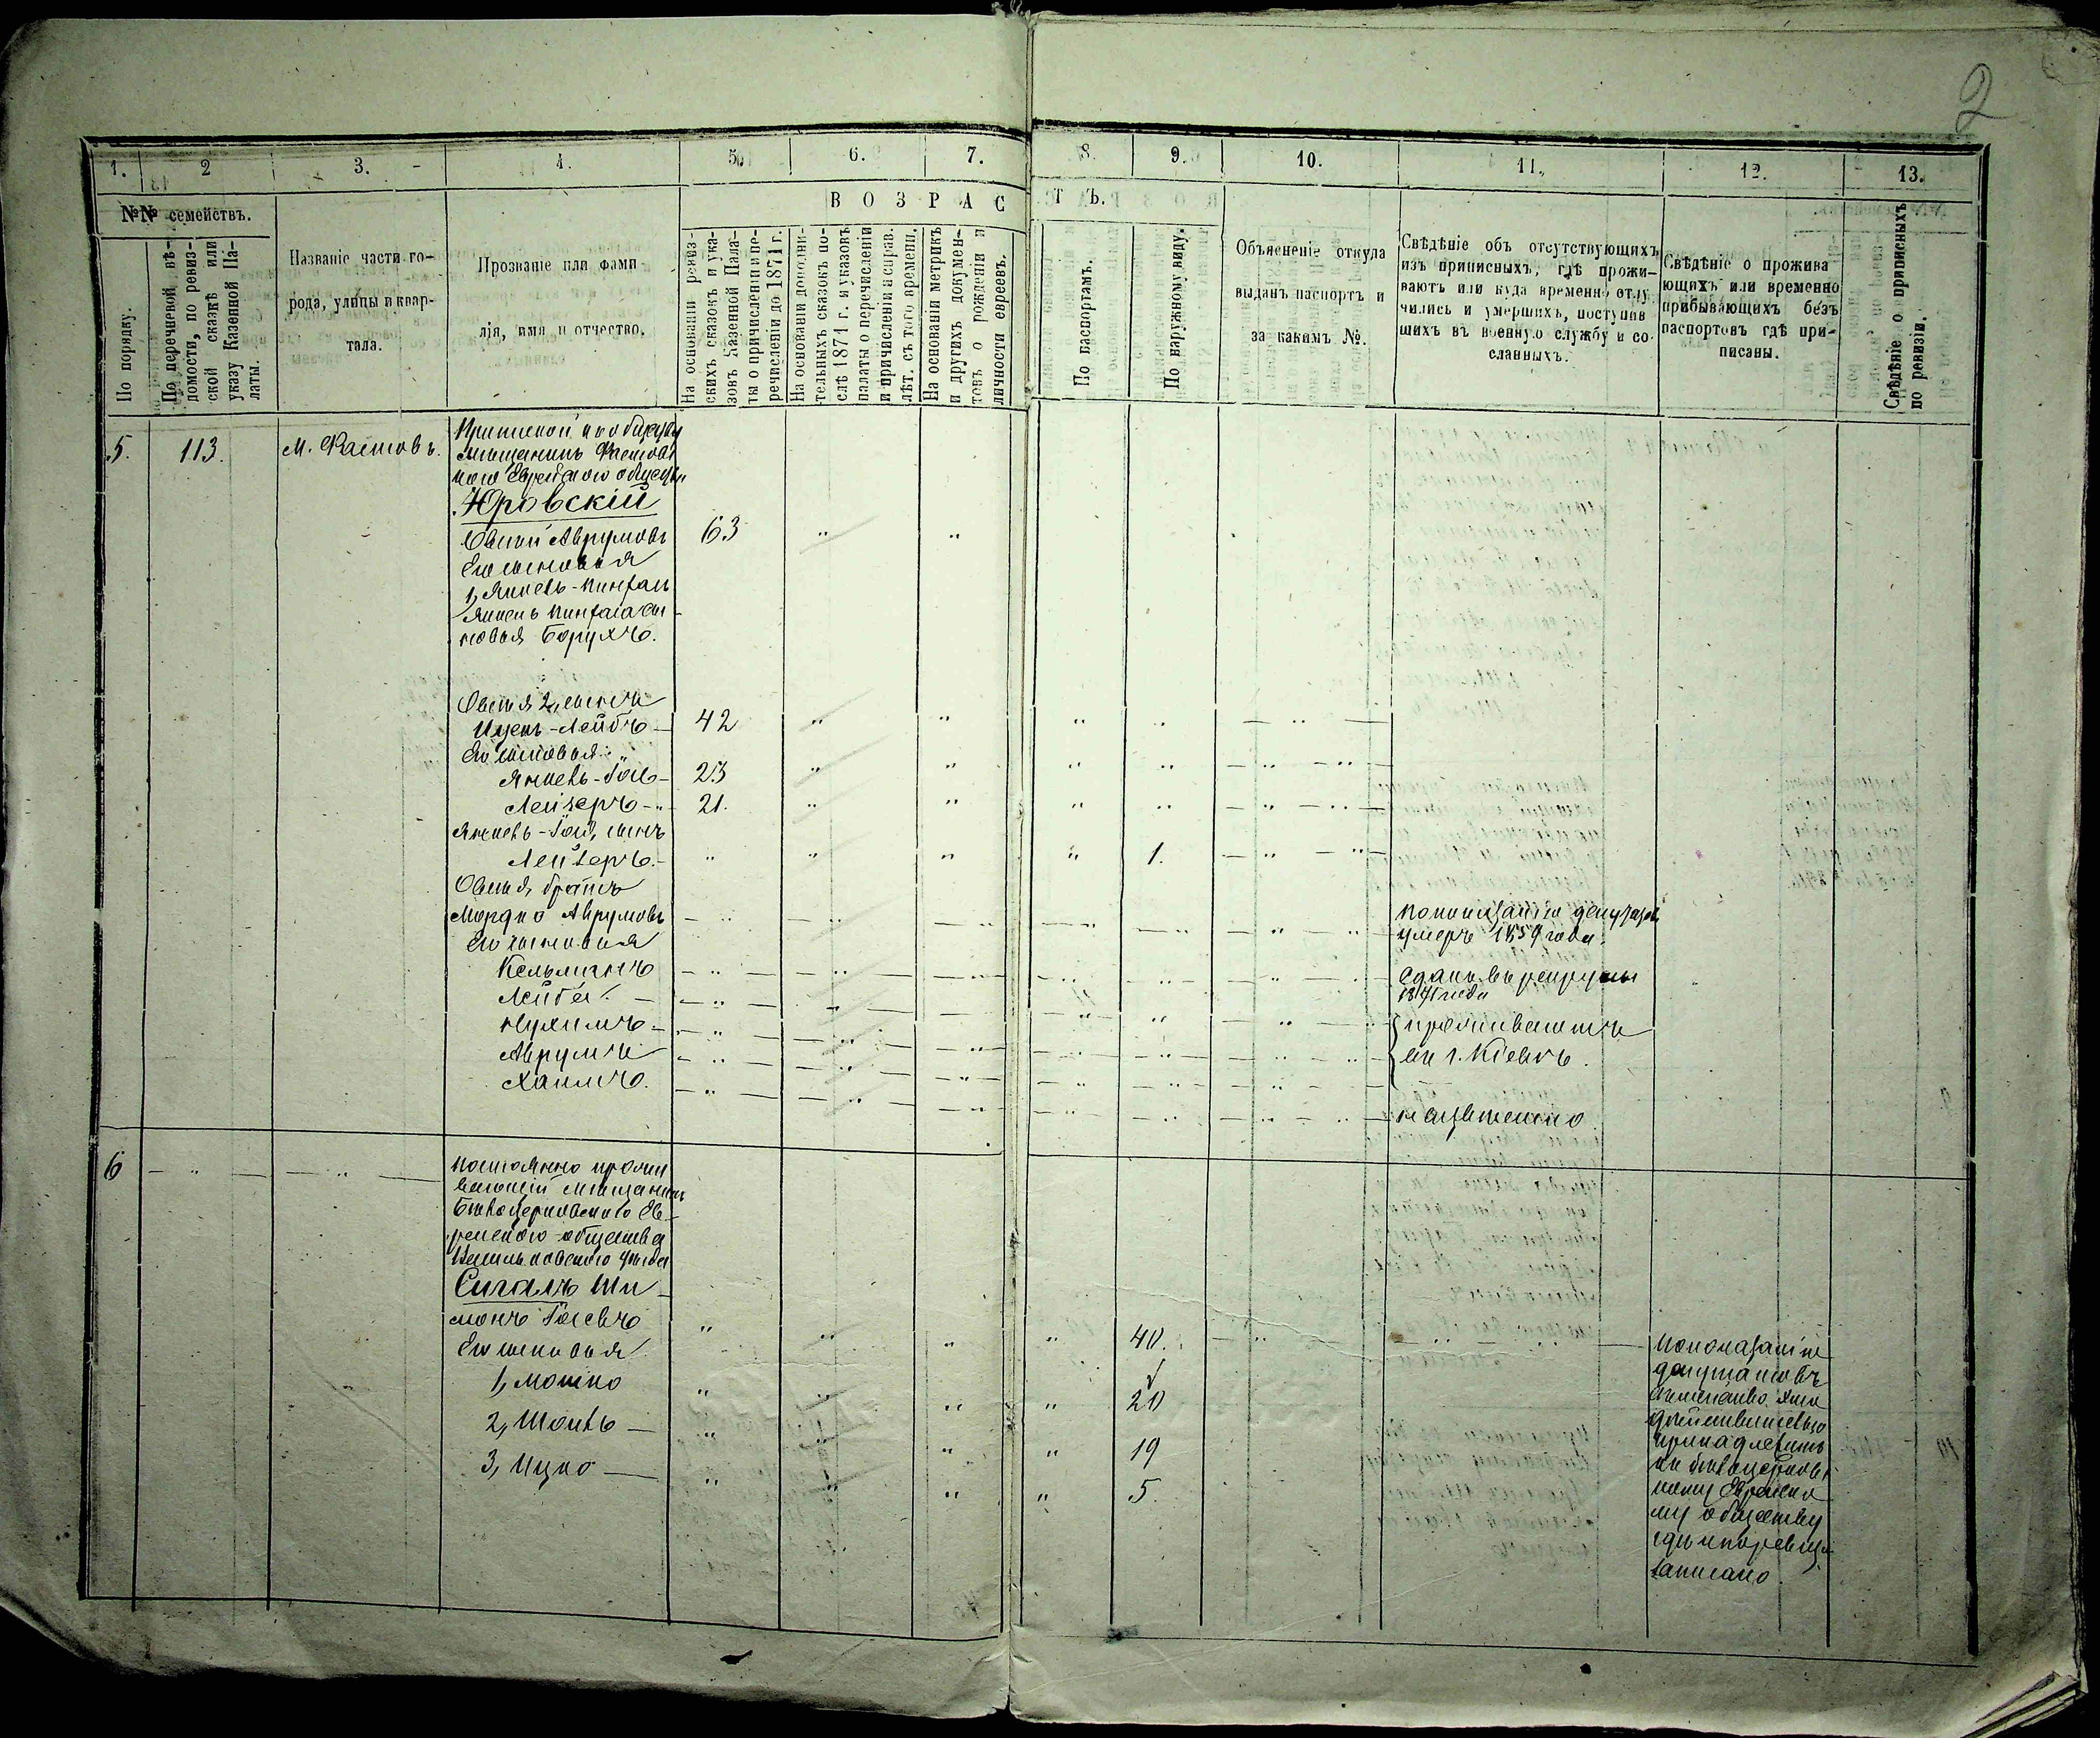 2
1.
2
3.
4.
5.
6.
7.
8.
9.
10.
11.
12.
13.
№№ семействъ.
В О З Р А С
Т Ъ.
По порядку.
По перечневой вѣ-
домости, по ревиз-
ской сказкѣ или
указу Казенной Па-
латы.
Названіе части го-
рода, улицы и квар-
тала.
Прозваніе или фами-
лія, имя и отчество.
На основаніи ревиз-
скихъ сказокъ и ука-
зовъ Казенной Пала-
ты о причисленіи и пе-
речисленіи до 1871 г.
На основаніи дополни-
тельныхъ сказокъ по-
слѣ 1871 г. и указовъ
палаты о перечисленіи
и причисленіи и справ.
лѣт. съ того времени.
На основаніи метрикъ
и другихъ докумен-
товъ о рожденіи и
личности евреевъ.
По паспортамъ.
По наружному виду.
Объясненіе откуда
выданъ паспортъ и
за какимъ №.
Свѣдѣніе объ отсутствующихъ
изъ приписныхъ, гдѣ прожи-
ваютъ или куда временно отлу
чились и умершихъ, поступив
шихъ въ военную службу и со-
сланныхъ.
Свѣдѣніе о прожива
ющихъ или временно
прибывающихъ безъ
паспортовъ гдѣ при-
писаны.
Свѣдѣніе о приписныхъ
по ревизіи.
5.
113.
М. Фастовъ.
мѣщанинъ Фастов
кого Еврейского общества
Юровскій
Овший Аврумовъ
63
Его сыновья
1, Янкель-Пинхасъ
Янкель Пинхаса сы
новья Борухъ.
Овшія 2, сынъ
Ицекъ-Лейбъ
42
Его сыновья
Янкель-Іось
23
Лейзеръ
21.
Янкель-Іося, сынъ
Лейзеръ.
1.
Овшія, братъ
Мордко Аврумовъ
по показанію депутатовъ
умеръ 1859 года.
Его сыновья
Кельманъ
сданъ въ рекруты
1871 года
Лейба.
Нухимъ
проживаютъ
Аврумъ
въ г. Кіевѣ.
Хаимъ.
неизвѣстно.
6
постоянно прожи
вающій мѣщанинъ
Бѣлоцерковского Ев
рейского общества
Васильковского уѣзда
Сигалъ Ши
монъ Іосевъ
40.
Его сыновья
1, Мошко
20
2, Шоилъ
19
3, Ицко
5.
По показанію
депутатовъ
семейство это
дѣйствительно
принадлежитъ
къ Бѣлоцерков
скому Еврейско
му обществу
гдѣ и по ревизіи
записано.